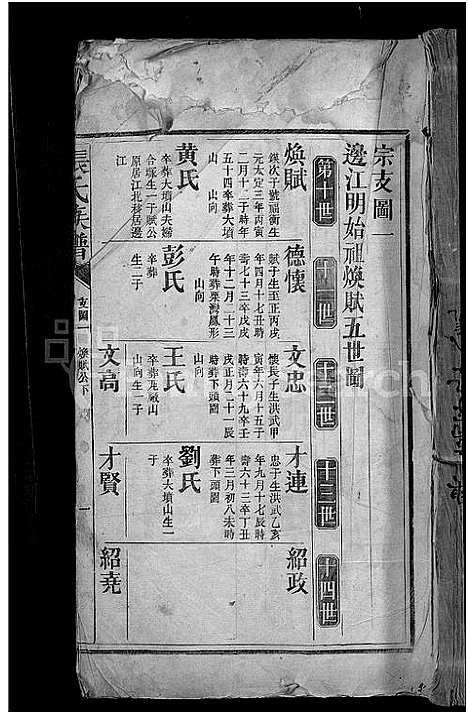 宗支圖一
邊江明始祖煥賦五世圖
第十世
十一世
十二世
十三世
十四世
煥賦
鍈次子號禰衡生
元太定三年丙寅
二月十二子時年
五十四卒葬大墳
山 山向
黃氏
卒葬大墳山夫婦
合塚生一子賦公
原居江北移居邊
江
德懷
賦子生至正丙戌
年四月十七丑時
壽七十三卒戊戌
年十二月二十三
午時葬栗灣鳳形
山向
彭氏
卒葬
生二子
文忠
懷長子生洪武甲
寅年六月十五子
時壽六十九卒壬
戌正月二十一辰
時葬下頭園
山向
王氏
卒葬瓦廠山
山向生一子
文高
才連
忠子生洪武乙亥
年九月十七辰時
壽六十三卒丁丑
年三月初八未時
葬下頭園
劉氏
卒葬大墳山生一
子
才賢
紹政
紹堯
張氏族譜
支圖一
煥賦公下
一